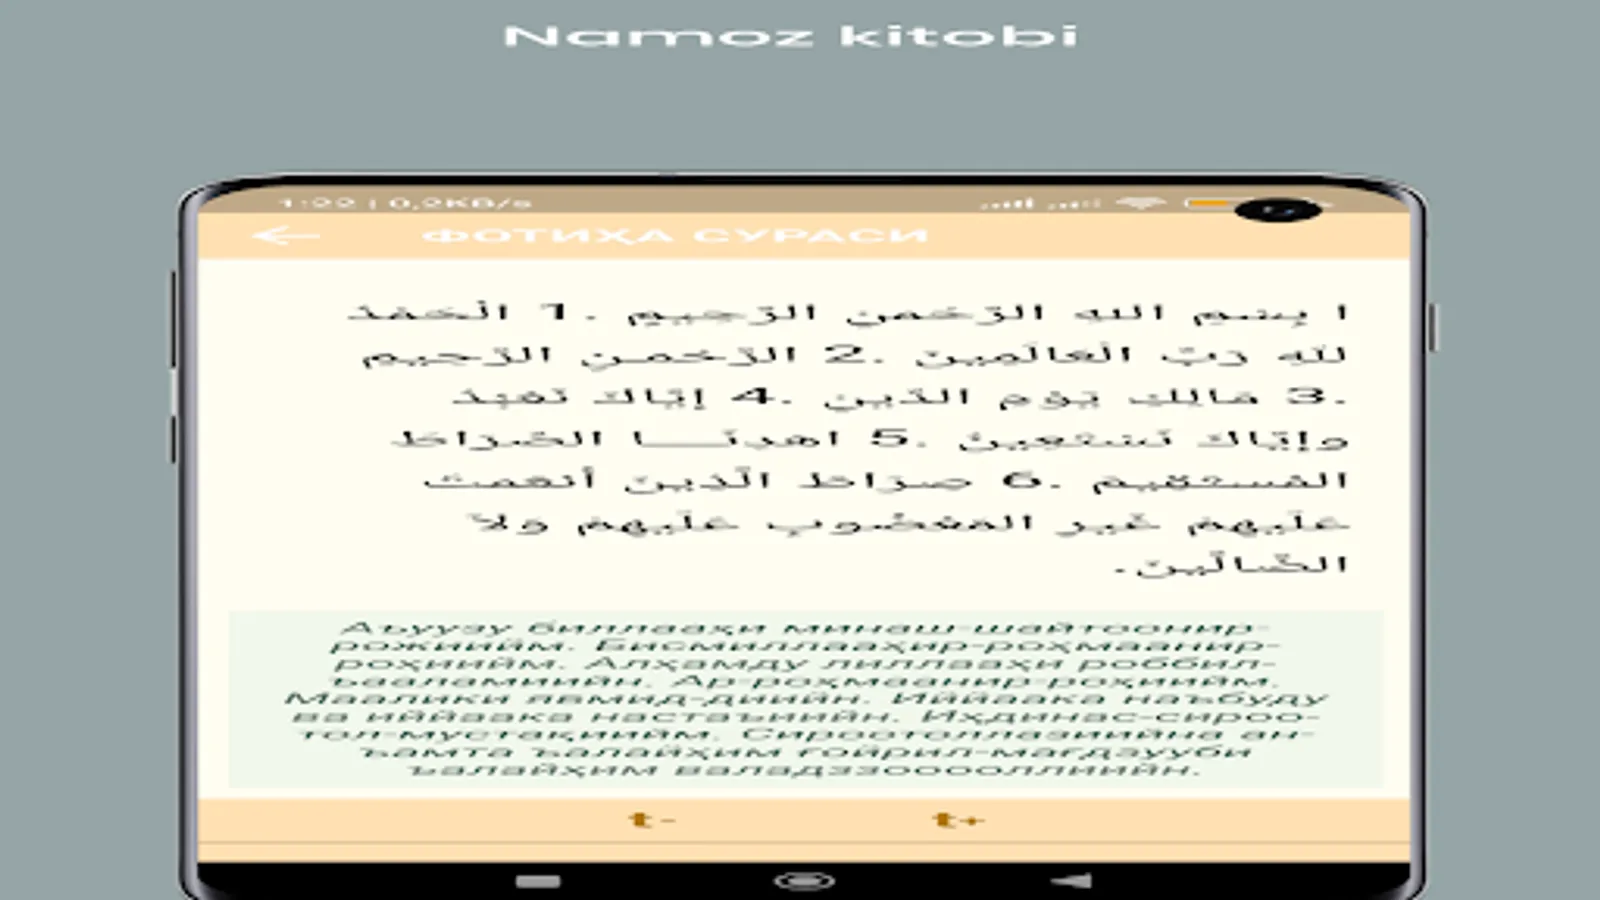 Namoz kitobi
1:22 | 0,2KB/s
ФОТИҲА СУРАСИ
ا بِسْمِ اللهِ الرَّحْمنِ الرَّحِيمِ .1 الْحَمْدُ
للهِ رَبِّ الْعَالَمِينَ .2 الرَّحْمـنِ الرَّحِيمِ
.3 مَالِكِ يَوْمِ الدِّينِ .4 إِيَّاكَ نَعْبُدُ
وإِيَّاكَ نَسْتَعِينُ .5 اهدِنَــــا الصِّرَاطَ
المُستَقِيمَ .6 صِرَاطَ الَّذِينَ أَنعَمتَ
عَلَيهِمْ غَيرِ المَغضُوبِ عَلَيهِمْ وَلاَ
الضَّالِّينَ.
Аъуузу биллааҳи минаш-шайтоонир-
рожииийм. Бисмиллааҳир-роҳмаанир-
роҳииийм. Алҳамду лиллааҳи роббил-
ъааламиийн. Ар-роҳмаанир-роҳииийм.
Маалики явмид-диийн. Иййаака наъбуду
ва иййаака настаъиийн. Иҳдинас-сироо-
тол-мустақиийм. Сироотоллазиийна ан-
ъамта ъалайҳим ғойрил-мағдзууби
ъалайҳим валадззооооллиийн.
t- t+